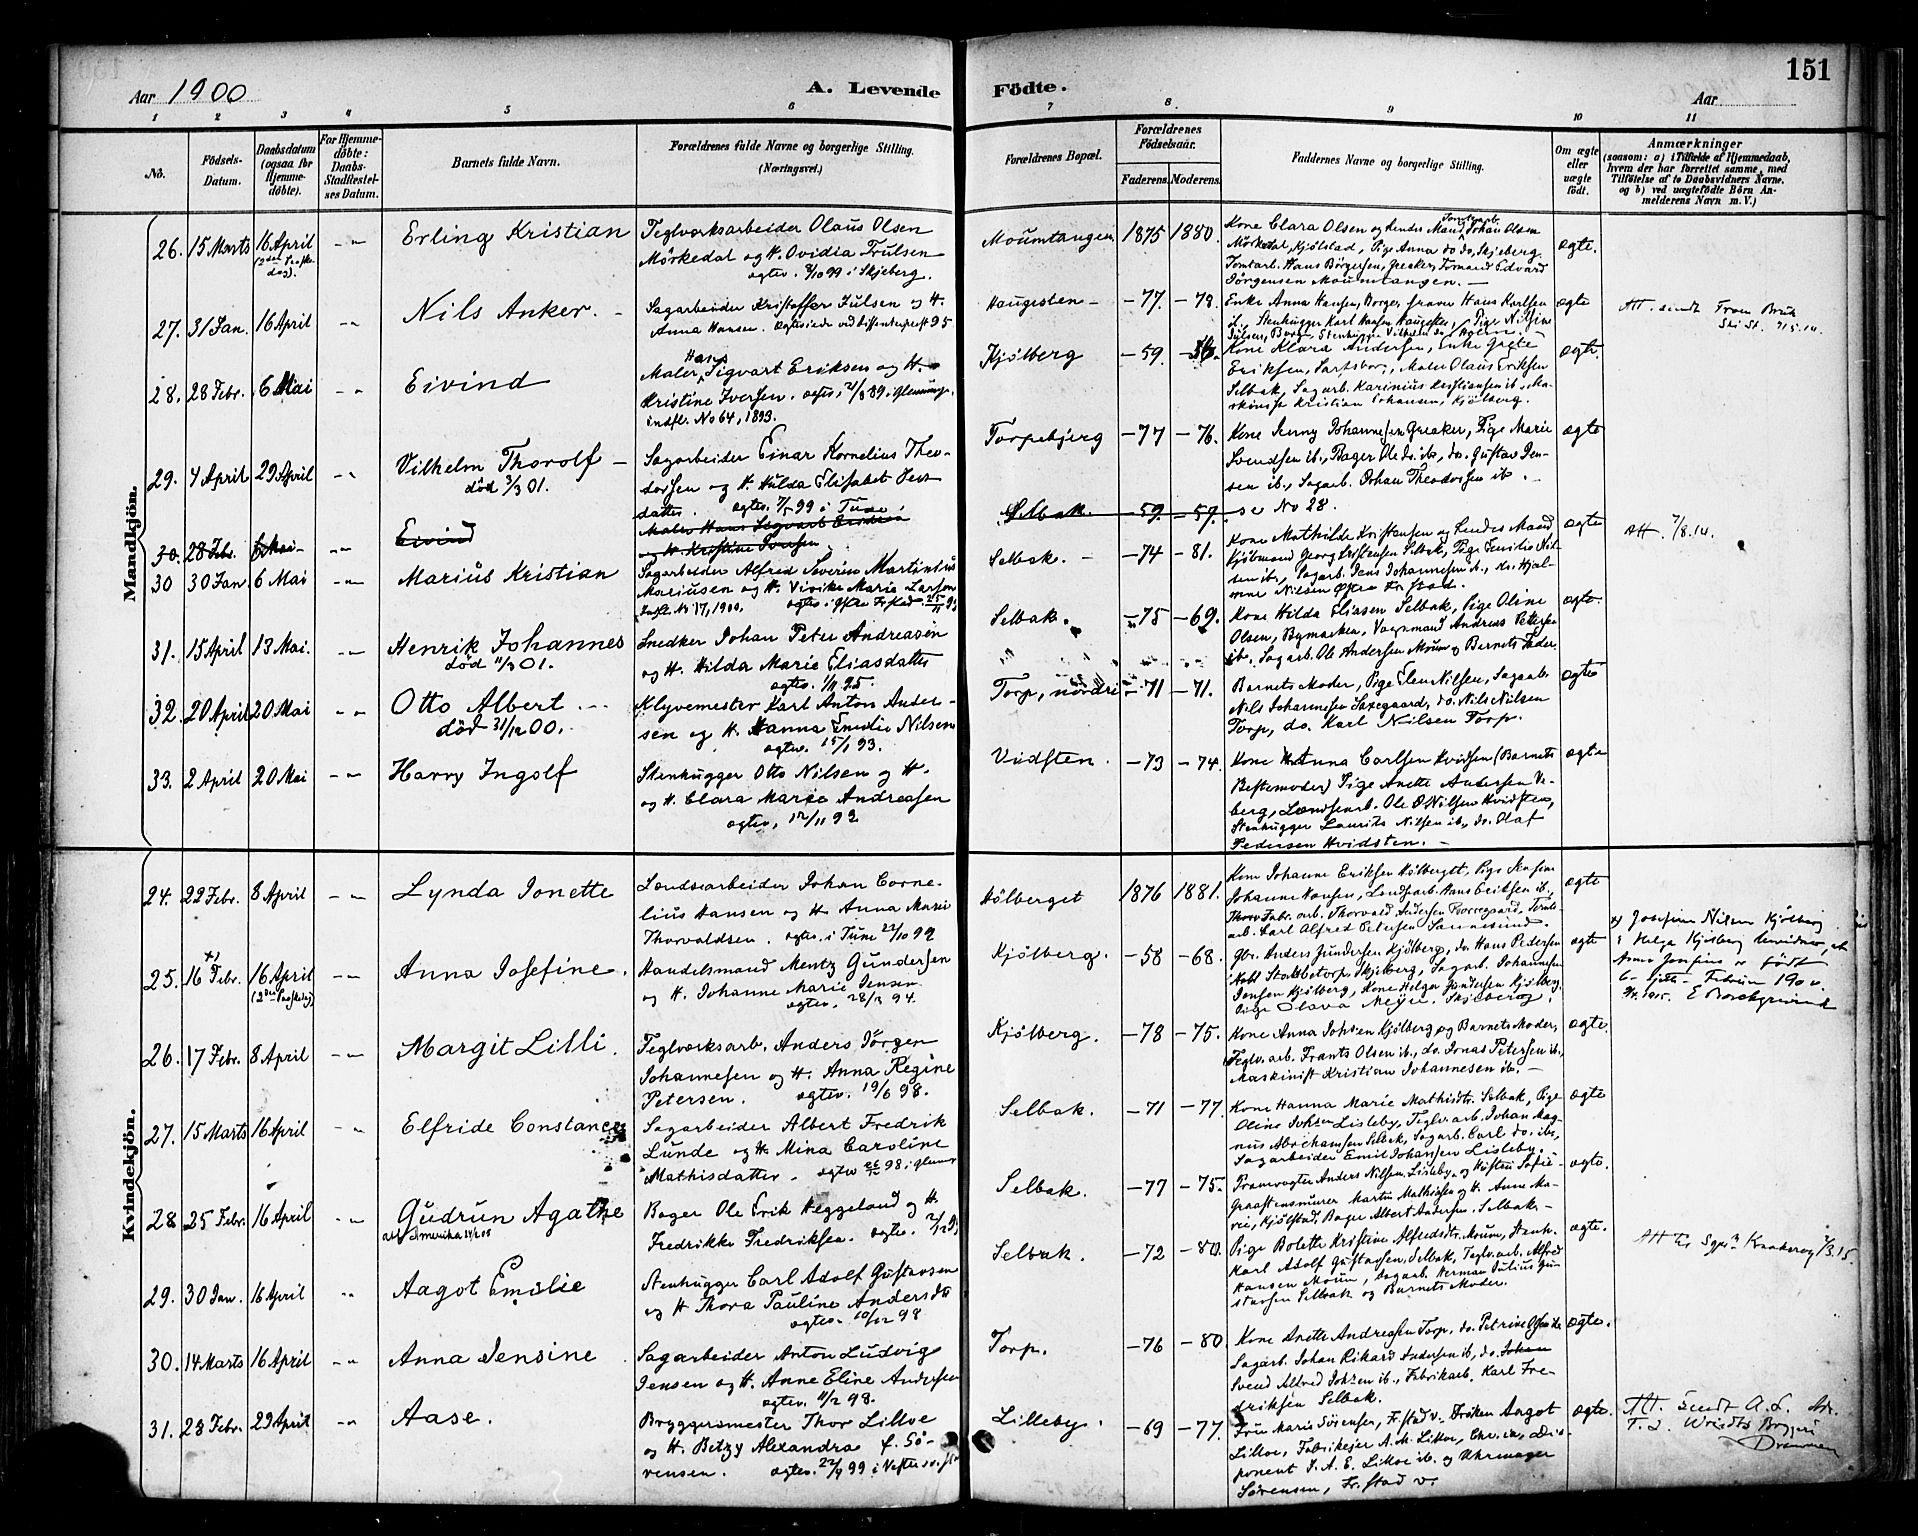 Aar 1900
A. Levende
Födte.
151
Aar
1 2 3 4 5 6 7 8. 9 10 11
No.
Födsels-Datum.
Daabsdatum (ogsaa for Hjemme-döbte).
For Hjemme-döbte: Daabs-Stadfæstel-ses Datum.
Barnets fulde Navn.
Forældrenes fulde Navne og borgerlige Stilling.
(Næringsvei.)
Forældrenes Bopæl.
Forældrenes Födselsaar.
Faderens. Moderens.
Faddernes Navne og borgerlige Stilling.
Om ægte eller uægte födt.
Anmærkninger
(saasom: a) i Tilfælde af Hjemmedaab, hvem der har forrettet samme, med Tilföielse af to Daabsvidners Navne, og b) ved uægtefödte Börn An-melderens Navn m. V.)
Mandkjön.
26. 15 Marts 16 April Erling Kristian
Teglværksarbeider Olaus Olsen
Mörkedal og H. Ovidia Trulsen
ægtev. 8/10 99 i Skjeberg.
Moumtangen 1875 1880.
Kone Clara Olsen og hendes Mand Johan Olsen
Mörkedal, Kjölstad, Pige Anna do do, Skjeberg
Tomtarb. Hans Börgersen, Greaker, Formand Edvard
Jörgensen Moumtangen.
ægte.
27. 31 Jan. 16 April Nils Anker.
Sagarbeider Kristoffer Julsen og H.
Anna Hansen.
Haugesten -77. -79.
Enke Anna Hansen, Borge,
ægte
28. 28 Febr. 6 Mai Eivind
Maler Hans Sigvart Eriksen og H.
Kristine Iversen. ægtev.
indfl. No 64, 1893.
Kjölberg -59.
Kone Klara Andersen, Enke Grete
Eriksen, Sarpsborg, Maler Olaus Eriksen
Selbak, Sagarb. Karinius Kristiansen ib., Ma-
skinist Kristian Johansen, Kjölberg.
ægte.
29. 4 April 29 April Vilhelm Thorolf
död 3/3 01.
Sagarbeider Einar Kornelius Theo-
dorsen og H. Hulda Elisabet Jens
datter. ægtev. 7/5 99 i Tune
Torpebjerg -77 -76.
Kone Jenny Johannesen Greaker, Pige Marie
Svendsen ib., Bager Ole do. ib., do. Gustav Jen-
sen ib., Sagarb. Johan Theodorsen ib.
ægte
30. 28 Feb. 6 Mai Eivind
Maler Hans Sigvart Eriksen
og H. Kristine Iversen
Selbak. -59. -59. se No 28.
30 30 Jan 6 Mai Marius Kristian
Sagarbeider Alfred Severin Martinius
Mariusen og H. Vivike Marie Larsen
Indfl. No 17, 1900.
Selbak. -74 -81.
Kone Mathilde Kristiansen og hendes Mand
Kjöbmand Georg Kristiansen Selbak, Pige Emilie Nil-
sen ib., Sagarb. Jens Johannesen ib., do. Hjal-
mar Nilsen
ægte
Att. 7/8.14.
31. 15 April 13 Mai. Henrik Johannes
död 11/3 01.
Snedker Johan Peter Andreasen
og H. Hilda Marie Eliasdatter
ægtev. 1/11 95.
Selbak. -75 -69.
Kone Hilda Eliasen Selbak, Pige Oline
Olsen, Bymarken, Vognmand Andreas Pettersen
ib., Sagarb. Ole Andersen Moum og Barnets Fader.
ægte.
32. 20 April 20 Mai Otto Albert
död 31/12 00.
Klyvemester Karl Anton Ander-
sen og H. Hanna Emilie Nilsen
ægtev. 15/1 93.
Torp, nordre -71 -71.
Barnets Moder, Pige Elen Nilsen, Sagarb.
Nils Johannesen Saxegaard, do. Nils Nilsen
Torp, do. Karl Nilsen Torp.
ægte
33. 2 April 20 Mai Harry Ingolf
Stenhugger Otto Nilsen og H.
og H. Clara Marie Andreasen
ægtev. 12/11 99
Vidsten. -73 -74.
Kone Anna Carlsen Hvidsten (Barnets
Bestemoder) Pige Anette Andersen Ve-
berg, Landsarb. Ole O. Nilsen Hvidsten,
Stenhugger Laurits Nilsen ib., do. Olaf
Pedersen Hvidsten.
ægte
Kvindekjön.
24. 22 Febr. 8 April Lynda Jonette
Landsarbeider Johan Corne-
lius Hansen og H. Anna Marie
Thorvaldsen. ægtev. i Tune 22/10 99
Hölberget 1876 1881.
Kone Johanne Eriksen Hölberget, Pige
Johanne Hansen, Landsarb. Hans Eriksen ib.,
Fabr. arb. Thorvald Andersen Borregaard,
arb. Karl Alfred Petersen Sannesund.
ægte
25. 16 Febr. 16 April (2den Paaskedag) Anna Josefine.
Handelsmand Mentz Gundersen
og H. Johanne Marie Jensen
Kjölberg. -58 -68.
Gbr. Anders Gundersen Kjölberg, do. Hans Pedersen
Skjeberg, Sagarb. Johannes
Jensen Kjölberg, Kone Helga Gundersen Kjölberg,
Pige Olava Meyer, Skjeberg.
ægte
x) Josefine Nilsen Kjölberg
i Helga Kjölberg bevidner, at
Anna Josefine er född
Februar 1900.
26. 17 Febr. 8 April Margit Lilli.
Teglværksarb. Anders Jörgen
Johannesen og H. Anna Regine
Petersen. ægtev. 19/6 98.
Kjölberg. -78 -75.
Kone Anna Johsen Kjölberg og Barnets Moder,
Teglv. arb. Frants Olsen ib., do. Jonas Petersen ib.,
Maskinist Kristian Johannesen ib.
ægte.
27. 15 Marts 16 April Elfride Constance
Sagarbeider Albert Fredrik
Lunde og H. Mina Caroline
Mathisdatter.
Selbak. -71 -77
Kone Hanna Marie Mathisdtr. Selbak, Pige
Oline Johsen Lisleby, Teglv. arb. Johan Mag-
nus Abrahamsen Selbak, Sagarb. Carl do. ib.,
Sagarbeider Emil Johansen Lisleby.
ægte
28. 25 Febr. 16 April Gudrun Agathe
Bager Ole Erik Heggelund og H.
Fredrikke Fredriksen.
Selbak. -77 -75.
Anders Nilsen, Lisleby,
Martin Mathisen og H. Anne Ma-
rie, Kjölstad, Bager Albert Andersen, Selbak.
ægte.
29. 30 Jan. 16 April Aagot Emilie
Stenhugger Carl Adolf Gustavsen
og H. Thora Pauline Andersdtr
ægtev. 10/12 98
Selbak. -72 -80.
Pige Bolette Kristine Alfredsdtr. Moum, Stenh.
Karl Adolf Gustavsen, Selbak, Teglv. arb. Alfred
Hansen Moum, Sagarb. Herman Julius Gu-
stavsen Selbak og Barnets Moder.
ægte.
30. 14 Marts 16 April Anna Jensine
Sagarbeider Anton Ludvig
Jensen og H. Anne Eline Andersen
ægtev. 11/2 98.
Torp. -76 -80
Kone Anette Andreasen Torp, do. Petrine
Sagarb. Johan Rikard Andersen ib., do. Johan
Svend Alfred Johsen ib., Fabrikarb. Karl Fre-
driksen Selbak.
ægte.
31. 28 Febr. 29 April Aase.
Bryggermester Thor Lilloe
og H. Betzy Alexandra f. Sö-
rensen. ægtev. 22/9 99
Lilleby. -69 -77.
Fru Marie Sörensen, Fr.stad v. Fröken Aagot
Lilloe, Fabrikeier A. M. Lilloe, Chr.ia, Dis-
ponent J. A. E. Lilloe ib. og Uhrmager
Sörensen, Fr.stad v.
ægte.
Att. sendt